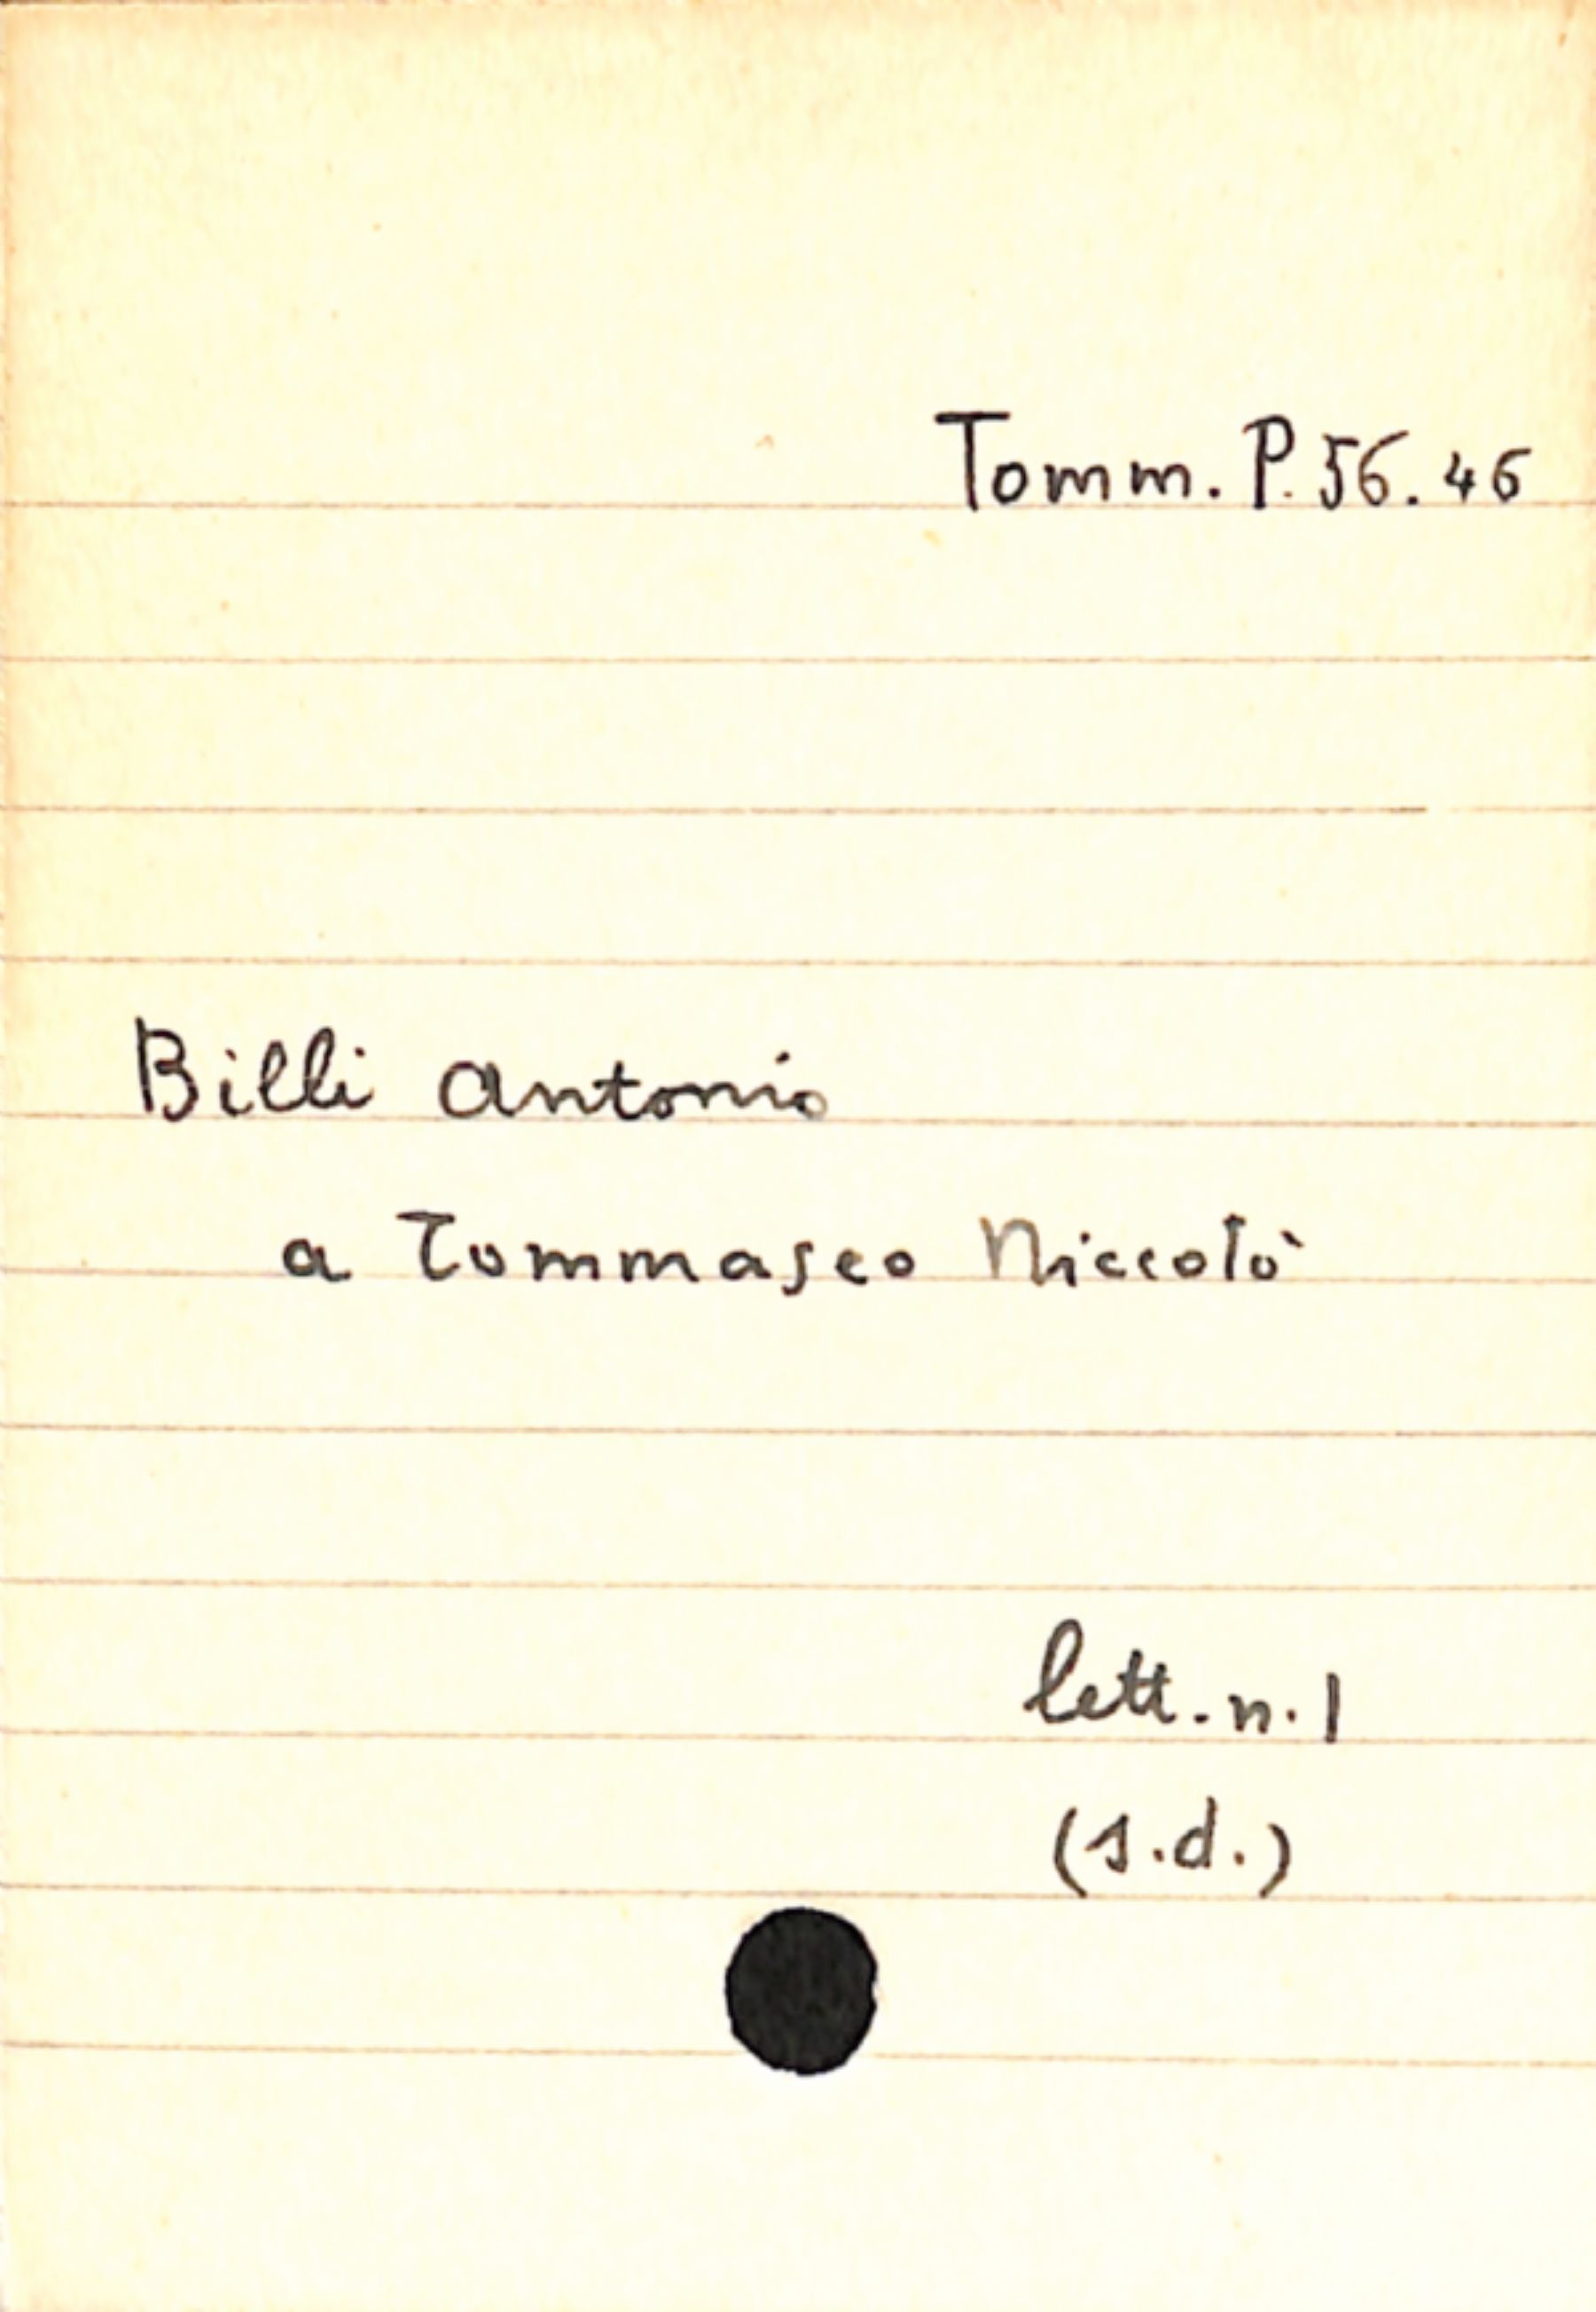 Tomm. P. 56. 46
Billi Antonio
a Tommaseo Niccolò
lett. n. 1
(s.d.)